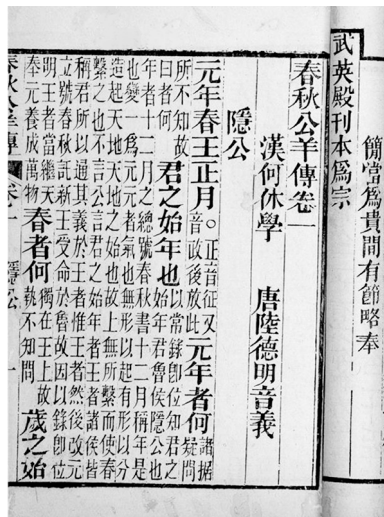 簡當爲貴間有節略奉
武英殿刊本爲宗
春秋公羊傳卷一
漢何休學 唐陸德明音義
隱公
元年春王正月。正音征又音政後放此元年者何諸據疑問
所不知故曰者何君之始年也以常錄即位知君之始年君魯侯隱公也
年者十二月之總號春秋書十二月稱年是
也變一爲元元者氣也無形以起有形以分
造起天地天地之始也故上無所繫而使春
繫之也不言公言君之始年者王者諸侯皆
稱君所以通其義於王者惟王者然後改元
立號春秋託新王受命於魯故因以錄即位
明王者當繼天奉元養成萬物春者何獨在王上故執不知問歲之始
春秋公羊傳 卷一 隱公 一